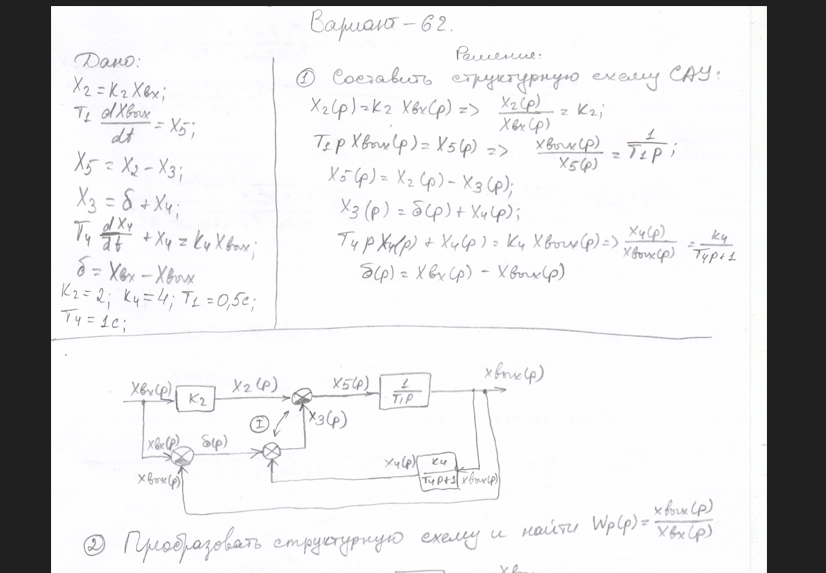 Вариант – 62.
Дано:
X2 = K2 Xвх;
T1 dXвых/dt = X5;
X5 = X2 – X3;
X3 = δ + X4;
T4 dX4/dt + X4 = K4 Xвых;
δ = Xвх – Xвых
K2 = 2; K4 = 4; T1 = 0,5c;
T4 = 1c;
Решение:
① Составить структурную схему САУ:
X2(p) = K2 Xвх(p) => X2(p)/Xвх(p) = K2;
T1 p Xвых(p) = X5(p) => Xвых(p)/X5(p) = 1/T1p;
X5(p) = X2(p) – X3(p);
X3(p) = δ(p) + X4(p);
T4 p X4(p) + X4(p) = K4 Xвых(p) => X4(p)/Xвых(p) = K4/T4p+1
δ(p) = Xвх(p) – Xвых(p)
Xвх(p)
K2
X2(p)
X5(p)
1/T1p
Xвых(p)
I
X3(p)
Xвх(p)
δ(p)
X4(p)
K4/T4p+1
Xвых(p)
Xвых(p)
② Преобразовать структурную схему и найти Wp(p) = Xвых(p)/Xвх(p)